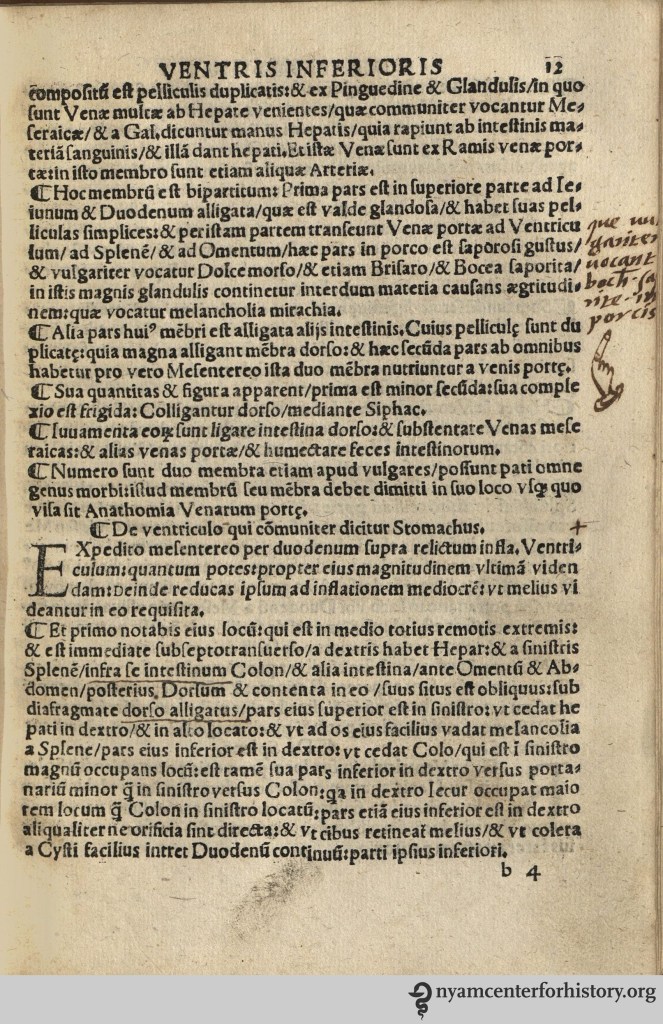 VENTRIS INFERIORIS 12
cōpositū est pelliculis duplicatis:& ex Pinguedine & Glandulis/in quo
sunt Venæ multæ ab Hepate venientes/quæ communiter vocantur Me⸗
seraicæ/& a Gal.dicuntur manus Hepatis/quia rapiunt ab intestinis ma⸗
teriā sanguinis/& illā dant hepati.Et istæ Venæ sunt ex Ramis venæ por⸗
tæ:in isto membro sunt etiam aliquæ Arteriæ.
¶Hoc membrū est bipartitum: Prima pars est in superiore parte ad Ie⸗
iunum & Duodenum alligata/quæ est valde glandosa/& habet suas pel⸗
liculas simplices:& per istam partem transeunt Venæ portæ ad Ventricu
lum/ad Splenē/& ad Omentum/hæc pars in porco est saporosi gustus/
& vulgariter vocatur Dolce morso/& etiam Brisaro/& Bocca saporita/
in istis magnis glandulis continetur interdum materia causans ægritudi⸗
nem:quæ vocatur melancholia mirachia.
que vul
gariter
vocant
boch-sa
rite-in
porcis
¶Alia pars huiꝰ mēbri est alligata alijs intestinis.Cuius pelliculę sunt du
plicatę:quia magna alligant mēbra dorso:& hæc secūda pars ab omnibus
habetur pro vero Mesentereo ista duo mēbra nutriuntur a venis portę.
¶Sua quantitas & figura apparent/prima est minor secūda:sua comple
xio est frigida: Colligantur dorso/mediante Siphac.
¶Iuuamenta eoꝝ sunt ligare intestina dorso:& substentate Venas mese
raicas:& alias venas portæ/& humectare feces intestinorum.
¶Numero sunt duo membra etiam apud vulgares/possunt pati omne
genus morbi:istud membrū seu mēbra debet dimitti in suo loco vsqꝫ quo
visa sit Anathomia Venarum portę.
¶De ventriculo qui cōmuniter dicitur Stomachus. +
EXpedito mesentereo per duodenum supra relictum infla.Ventri⸗
culum:quantum potes:propter eius magnitudinem vltimā viden
dam:Deinde reducas ipsum ad inflationem mediocrē:vt melius vi
deantur in eo requisita.
¶Et primo notabis eius locū:qui est in medio totius remotis extremis:
& est immediate sub septo transuerso/a dextris habet Hepar:& a sinistris
Splenē/infra se intestinum Colon/& alia intestina/ante Omentū & Ab⸗
domen/posterius Dorsum & contenta in eo /suus situs est obliquus:sub
diafragmate dorso alligatus/pars eius superior est in sinistro:vt cedat he
pati in dextro/& in alto locato:& vt ad os eius facilius vadat melancolia
a Splene/pars eius inferior est in dextro:vt cedat Colo/qui est ī sinistro
magnū occupans locū:est tamē sua pars inferior in dextro versus porta⸗
nariū minor q̄ in sinistro versus Colon:qa in dextro Iecur occupat maio
rem locum q̄ Colon in sinistro locatū:pars etiā eius inferior est in dextro
aliqualiter ne orificia sint directa:& vt cibus retineat melius/& vt colera
a Cysti facilius intret Duodenū continuū:parti ipsius inferiori.
b 4
nyamcenterforhistory.org